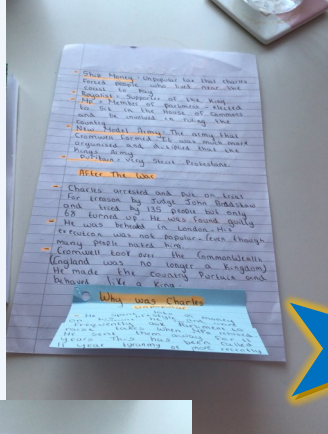 Ship Money - Unpopular tax that Charles
forced people who lived near the
coast to pay
Royalist - Supporter of the King
MP - Member of parliament - elected
to sit in the House of Commons
and be involved in ruling the
country
New Model Army - The army that
Cromwell formed. It was much more
organised and disciplined than the
Kings Army
Puritan - Very Strict Protestant
After The War
- Charles arrested and put on trial
for treason by Judge John Bradshaw
and tried by 135 people but only
68 turned up. He was found guilty
- He was behead in London. His
execution was not popular - (even though
many people hated him
- Cromwell took over the Commonwealth
(England was no longer a Kingdom)
He made the country Puritan and
behaved like a King
Why was Charles
unpopular
money
frequently and
Parliament to
raise taxes when
He sent them away
years This has been called
11 year tyranny